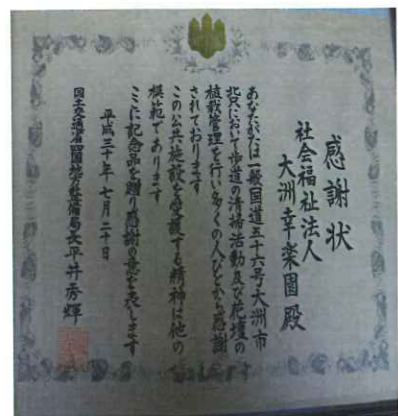 感謝状
社会福祉法人
大洲幸楽園 殿
あなたがたは一般国道五十六号大洲市
北只において歩道の清掃活動及び花壇の
植栽管理を行い多くの人びとから感謝
されております
この公共施設を愛護する精神は他の
模範であります
ここに記念品を贈り感謝の意を表します
平成三十年七月二十日
国土交通省四国地方整備局長平井秀輝